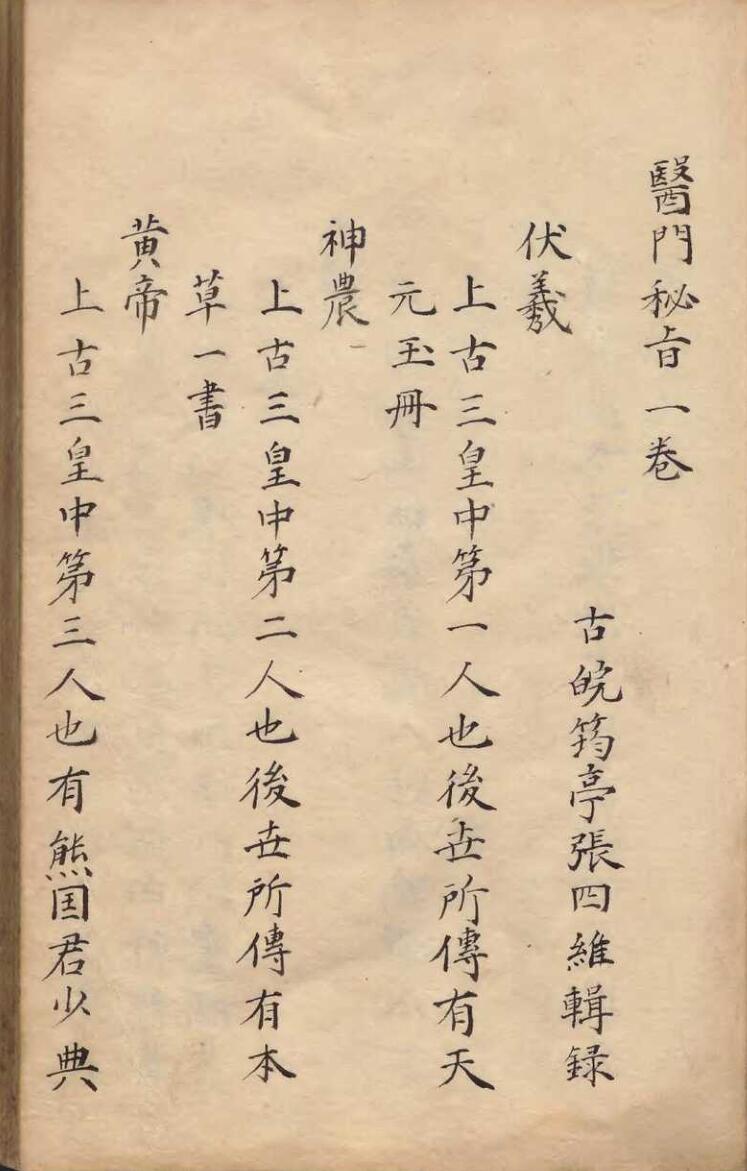 醫門秘旨一卷
古皖筠亭張四維輯録
伏羲
上古三皇中第一人也後世所傳有天
元玉冊
神農
上古三皇中第二人也後世所傳有本
草一書
黄帝
上古三皇中第三人也有熊国君少典